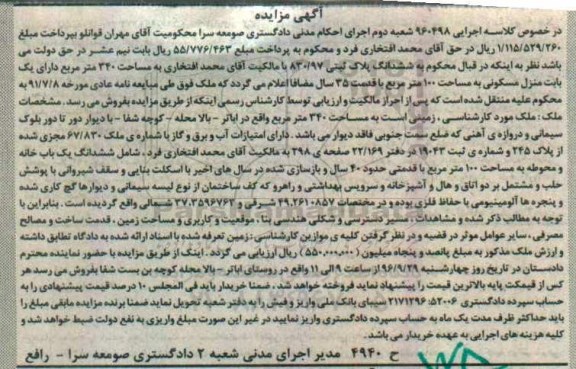 آگهی مزایده
در خصوص کلاسه اجرایی ۹۶۰۴۹۸ شعبه دوم اجرای احکام مدنی دادگستری صومعه سرا محکومیت آقای مهران قوانلو بپرداخت مبلغ
۱/۱۱۵/۵۲۹/۲۶۰ ریال در حق آقای محمد افتخاری فرد و محکوم به پرداخت مبلغ ۵۵/۷۷۶/۴۶۳ ریال بابت نیم عشر در حق دولت می
باشد نظر به اینکه در قبال محکوم به ششدانگ پلاک ثبتی ۸۳۰/۹۷ با مالکیت آقای محمد افتخاری به مساحت ۳۴۰ متر مربع دارای یک
بابت منزل مسکونی به مساحت ۱۰۰ متر مربع با قدمت ۳۵ سال مضافا اعلام می گردد که ملک فوق طی مبایعه نامه عادی مورخه ۹۱/۷/۸ به
محکوم علیه منتقل شده است که پس از احراز مالکیت و ارزیابی توسط کارشناس رسمی اینکه از طریق مزایده بفروش می رسد. مشخصات
ملک : ملک مورد کارشناسی ، زمینی است به مساحت ۳۴۰ متر مربع واقع در اباتر – بالا محله – کوچه شفا – با دیوار دور تا دور بلوک
سیمانی و دروازه ی آهنی که ضلع سمت جنوبی فاقد دیوار می باشد . دارای امتیازات آب و برق و گاز با شماره ی ملک ۶۷/۸۳۰ مجزی شده
از پلاک ۲۴۵ و شماره ی ثبت ۱۹۰۴۳ در دفتر ۲۲/۱۶۹ صفحه ی ۳۹۸ به مالکیت آقای محمد افتخاری فرد ، شامل ششدانگ یک باب خانه
و محوطه به مساحت ۱۰۰ متر مربع با قدمتی حدود ۴۰ سال و بازسازی شده در سال های اخیر با اسکلت بنایی و سقف شیروانی با پوشش
حلب و مشتمل بر دو اتاق و هال و آشپزخانه و سرویس بهداشتی و راهرو که کف ساختمان از نوع لیسه سیمانی و دیوارها گچ کاری شده
و پنجره ها آلومینیومی با حفاظ فلزی بوده و در مختصات ۴۹.۲۶۱۰۸۵۷ شرقی و ۳۷.۳۵۹۶۷۶۳ شمالی واقع گردیده است . بنابراین با
توجه به مطالب ذکر شده و مشاهدات ، ابعاد دسترسی و شکل هندسی بنا ، موقعیت و کاربری و مساحت زمین ، قدمت ساخت و مصالح
مصرفی ، سایر عوامل موثر در قضیه و در نظر گرفتن کلیه ی موازین کارشناسی : زمین تعرفه شده با اسناد ارائه شده به دادگاه تطابق داشته
و ارزش ملک مذکور به مبلغ پانصد و پنجاه میلیون ( ۵۵۰,۰۰۰,۰۰۰ ) ریال ارزیابی می گردد . اینک از طریق مزایده با حضور نماینده محترم
دادستان در تاریخ روز چهارشنبه ۹۶/۹/۲۹ از ساعت ۹ الی ۱۱ واقع در روستای اباتر – بالا محله کوچه بن بست شفا بفروش می رسد هر
کس از قیمکت پایه بالاترین قیمت را پیشنهاد نماید فروخته خواهد شد . ضمنا خریدار باید فی المجلس ۱۰ درصد قیمت پیشنهادی را به
حساب سپرده دادگستری ۲۱۷۱۲۹۶۰۵۲۰۰۶ سیبای بانک ملی واریز و فیش را به دفتر شعبه تحویل نماید ضمنا برنده مزایده مابقی مبلغ را
باید حداکثر ظرف مدت یک ماه به حساب سپرده دادگستری واریز نمایید در غیر این صورت مبلغ واریزی به نفع دولت ضبط خواهد شد و
کلیه هزینه های اجرایی به عهده خریدار می باشد.
ح ۴۹۴۰ مدیر اجرای مدنی شعبه ۲ دادگستری صومعه سرا – رافع